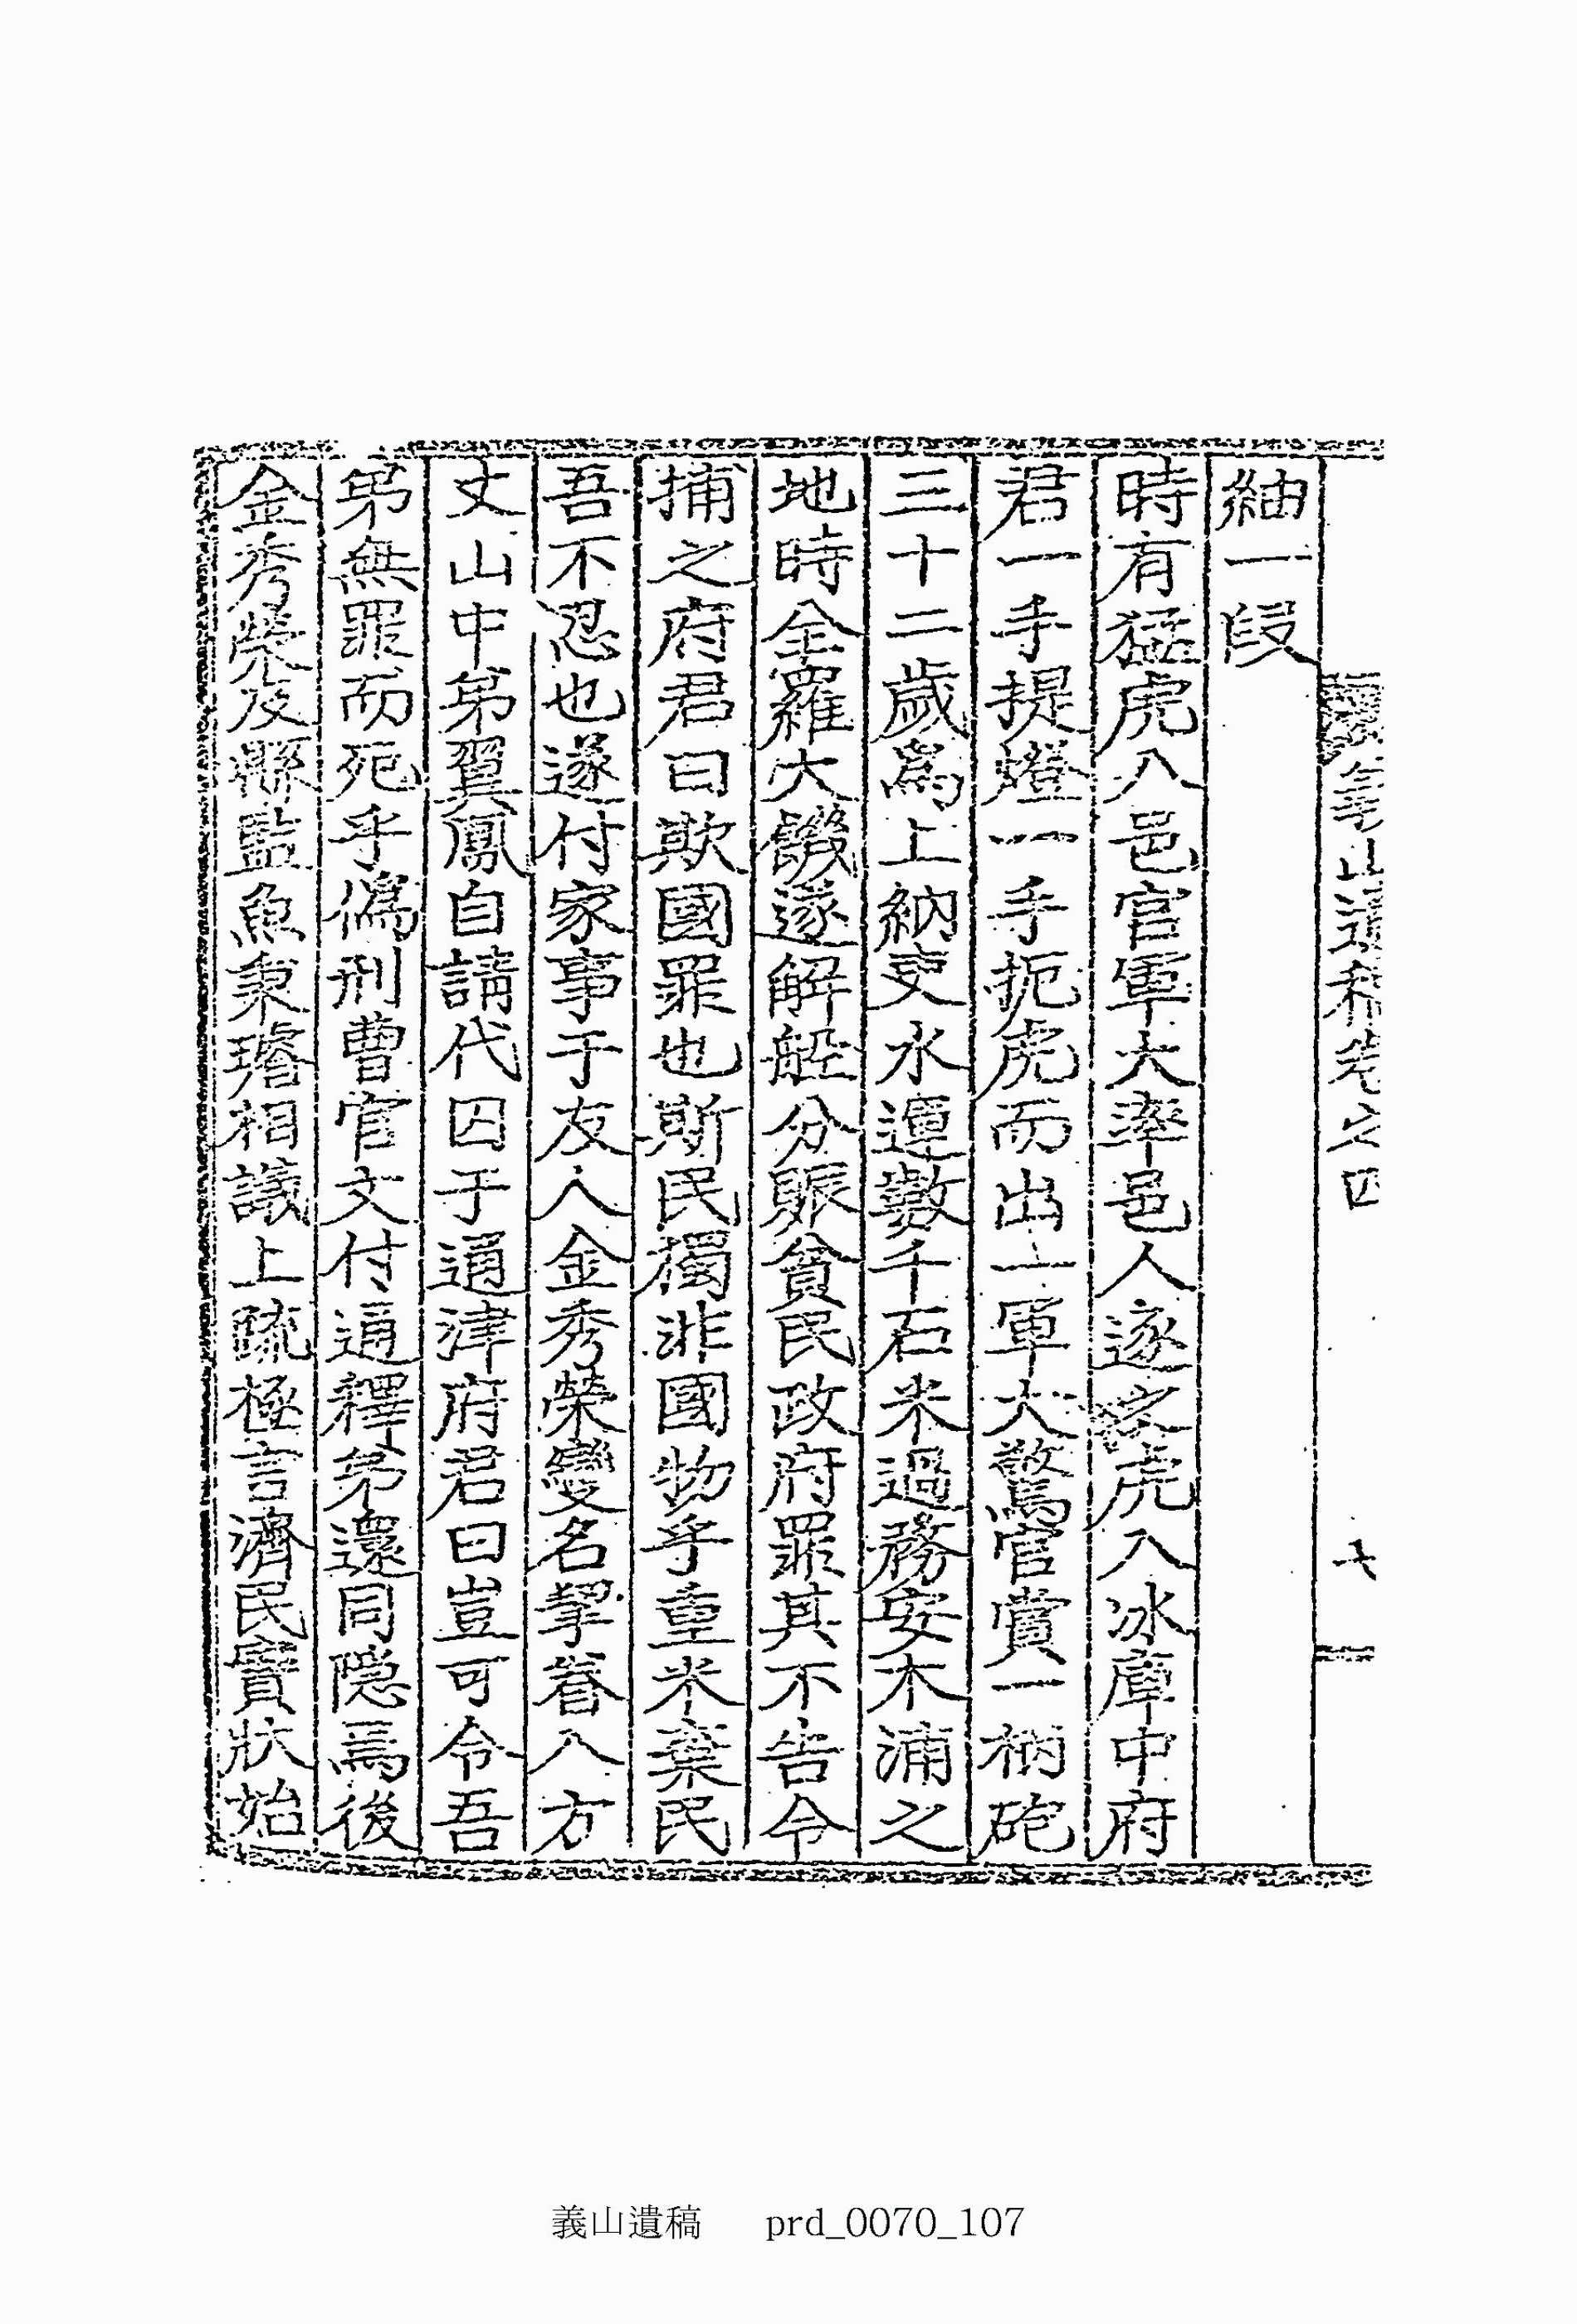 義山遺稿卷之四
七
紬一段
時有猛虎入邑官軍大率邑人逐之虎入氷庫中府
君一手提燈一手扼虎而出一軍大驚官賞一柄砲
三十二歲爲上納吏水運數千石米過務安木浦之
地時全羅大饑遂解船分賑貧民政府罪其不告令
捕之府君曰欺國罪也斯民獨非國物乎重米棄民
吾不忍也遂付家事于友人金秀榮變名挈眷入方
丈山中弟翼鳳自請代囚于通津府君曰豈可令吾
弟無罪而死乎僞刑曹官文付通釋弟還同隱焉後
金秀榮及縣監魚秉璿相議上疏極言濟民實狀始
義山遺稿 prd_0070_107